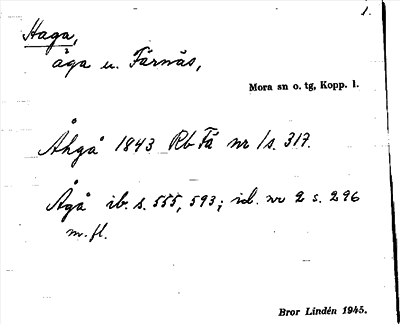 1.
Haga,
äga u. Färnäs,
Mora sn o. tg, Kopp. l.
Åhgå 1843 Rb Fä nr 1 s. 317.
Ågå ib. s. 555, 593; id. nr 2 s. 296
m. fl.
Bror Lindén 1945.